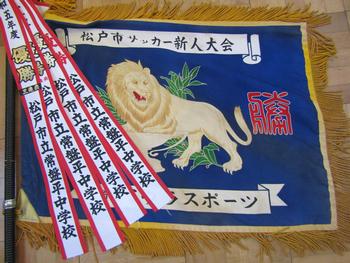 松戸市サッカー新人大会
勝
ラスポーツ
五年度
優勝
松戸市立常盤平中学校
松戸市立常盤平中学校
松戸市立常盤平中学校
松戸市立常盤平中学校